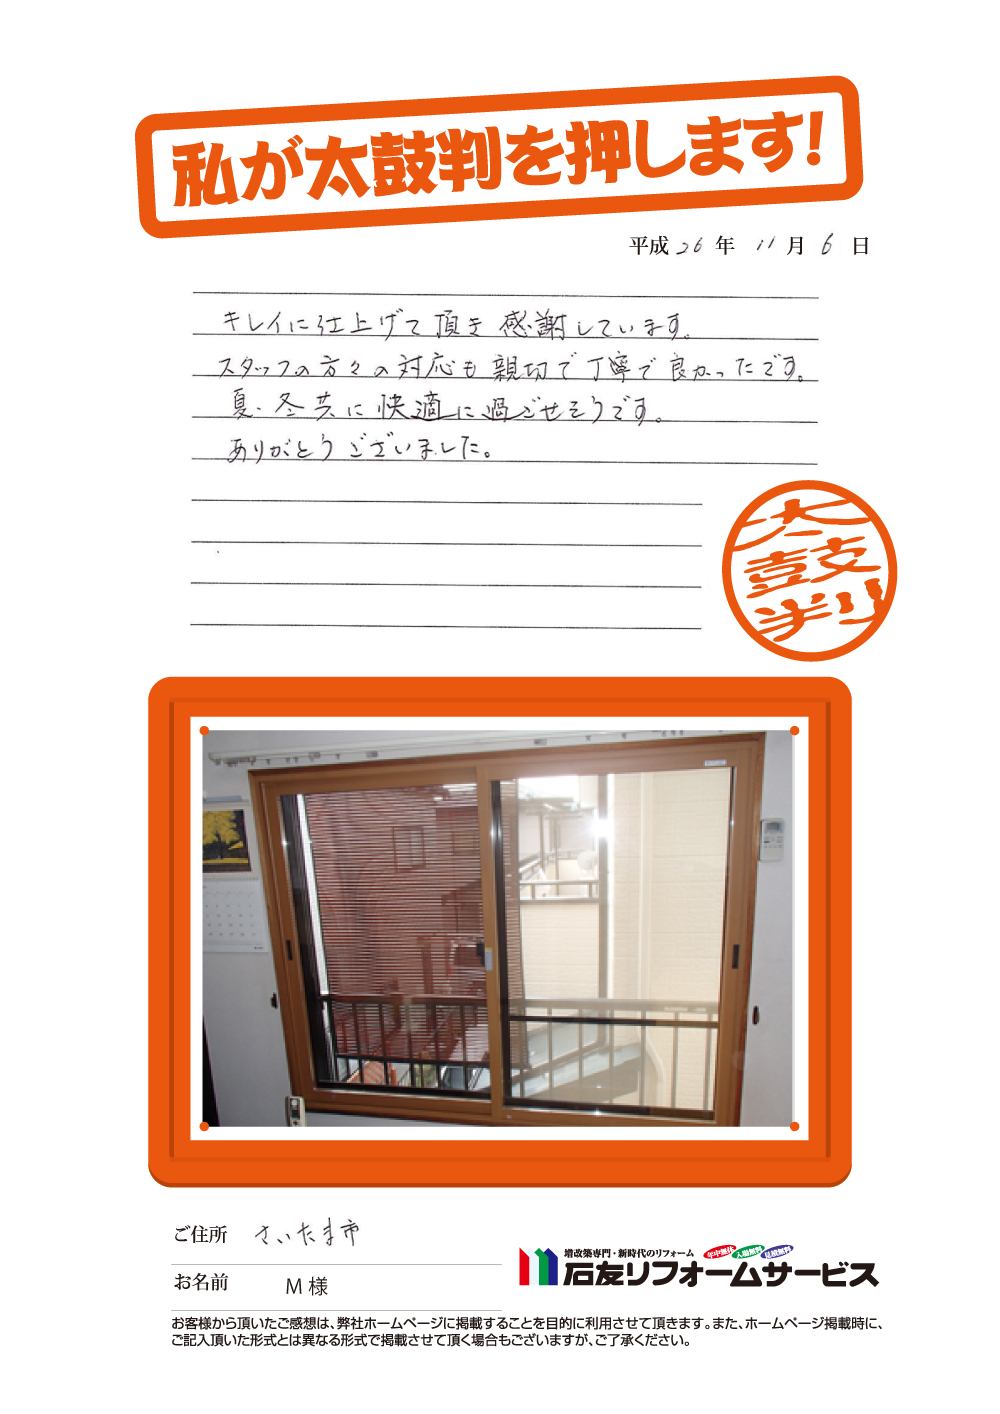 私が太鼓判を押します!
平成26年 11月 6日
キレイに仕上げて頂き 感謝しています。
スタッフの方々の対応も 親切で丁寧で良かったです。
夏、冬共に快適に過ごせそうです。
ありがとうございました。
太鼓判
ご住所 さいたま市
お名前 M 様
増改築専門・新時代のリフォーム
石友リフォームサービス
お客様から頂いたご感想は、弊社ホームページに掲載することを目的に利用させて頂きます。また、ホームページ掲載時に、
ご記入頂いた形式とは異なる形式で掲載させて頂く場合もございますが、ご了承ください。